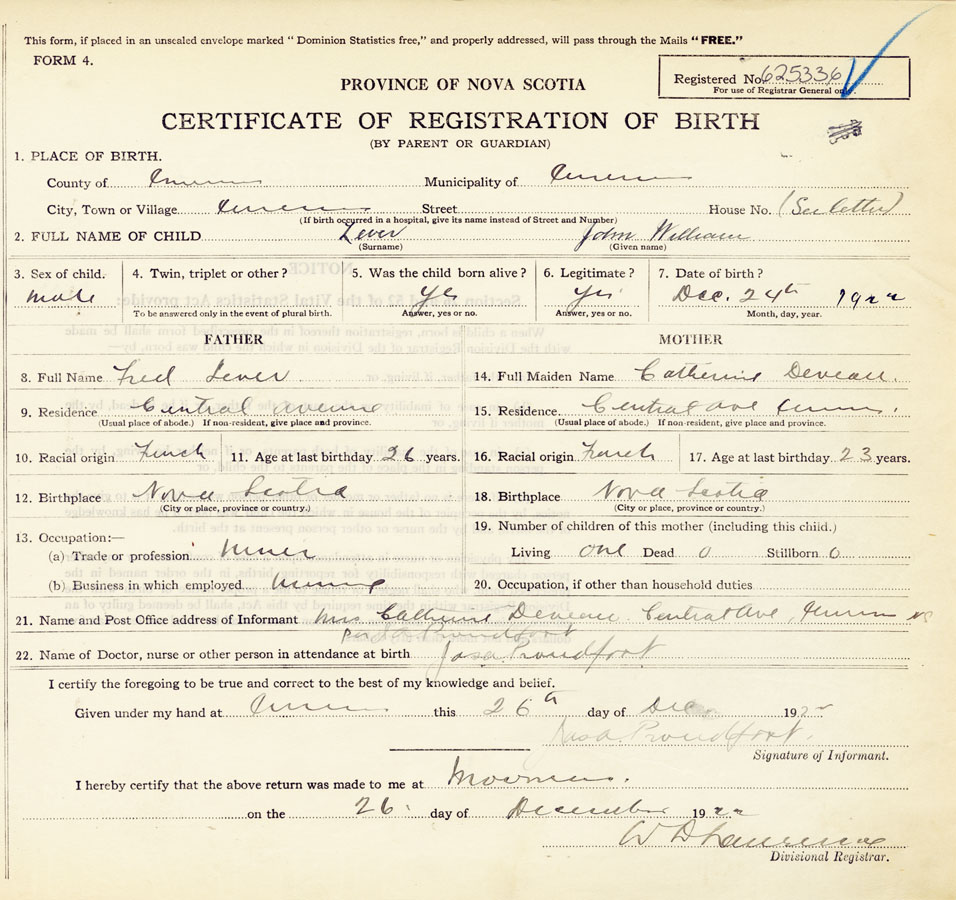 This form, if placed in an unsealed envelope marked "Dominion Statistics free," and properly addressed, will pass through the Mails "FREE."
FORM 4.
Registered No. 625336
For use of Registrar General only.
PROVINCE OF NOVA SCOTIA
CERTIFICATE OF REGISTRATION OF BIRTH
(BY PARENT OR GUARDIAN)
1. PLACE OF BIRTH.
County of Municipality of
City, Town or Village Street House No. (See letter)
(If birth occurred in a hospital, give its name instead of Street and Number)
2. FULL NAME OF CHILD Lever John William
(Surname) (Given name)
3. Sex of child. 4. Twin, triplet or other? 5. Was the child born alive? 6. Legitimate? 7. Date of birth?
male yes yes Dec. 24th 1922
To be answered only in the event of plural birth. Answer, yes or no. Answer, yes or no. Month, day, year.
FATHER MOTHER
8. Full Name Fred Lever 14. Full Maiden Name Catherine Deveau.
9. Residence Central Avenue 15. Residence Central Ave
(Usual place of abode.) If non-resident, give place and province. (Usual place of abode.) If non-resident, give place and province.
10. Racial origin French 11. Age at last birthday 26 years. 16. Racial origin French 17. Age at last birthday 23 years.
12. Birthplace Nova Scotia 18. Birthplace Nova Scotia
(City or place, province or country.) (City or place, province or country.)
19. Number of children of this mother (including this child.)
13. Occupation:—
(a) Trade or profession Miner Living one Dead 0 Stillborn 0
(b) Business in which employed Mining 20. Occupation, if other than household duties
21. Name and Post Office address of Informant Mrs Catherine Deveau Central Ave, NS
per Jas A Proudfoot
22. Name of Doctor, nurse or other person in attendance at birth Jas a. Proudfoot
I certify the foregoing to be true and correct to the best of my knowledge and belief.
Given under my hand at this 26th day of Dec 1922
Jas a. Proudfoot.
Signature of Informant.
I hereby certify that the above return was made to me at
on the 26. day of December 1922
Divisional Registrar.